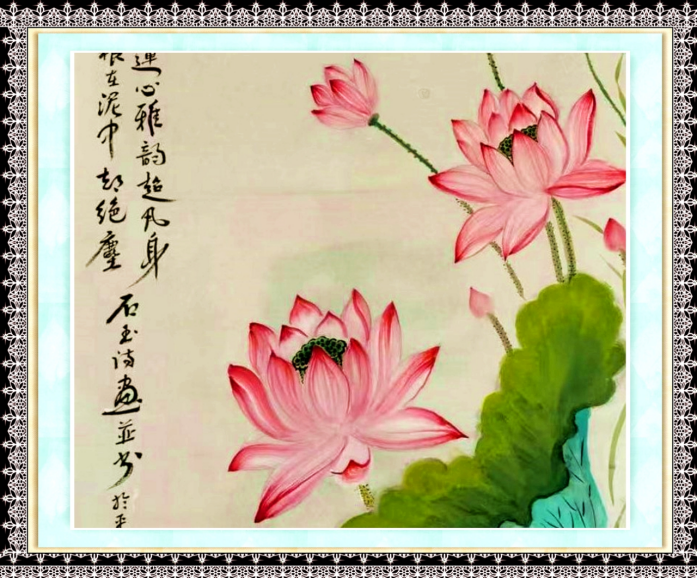 蓮心雅韵超凡身
根在泥中却絕塵
石玉诗畫並书於